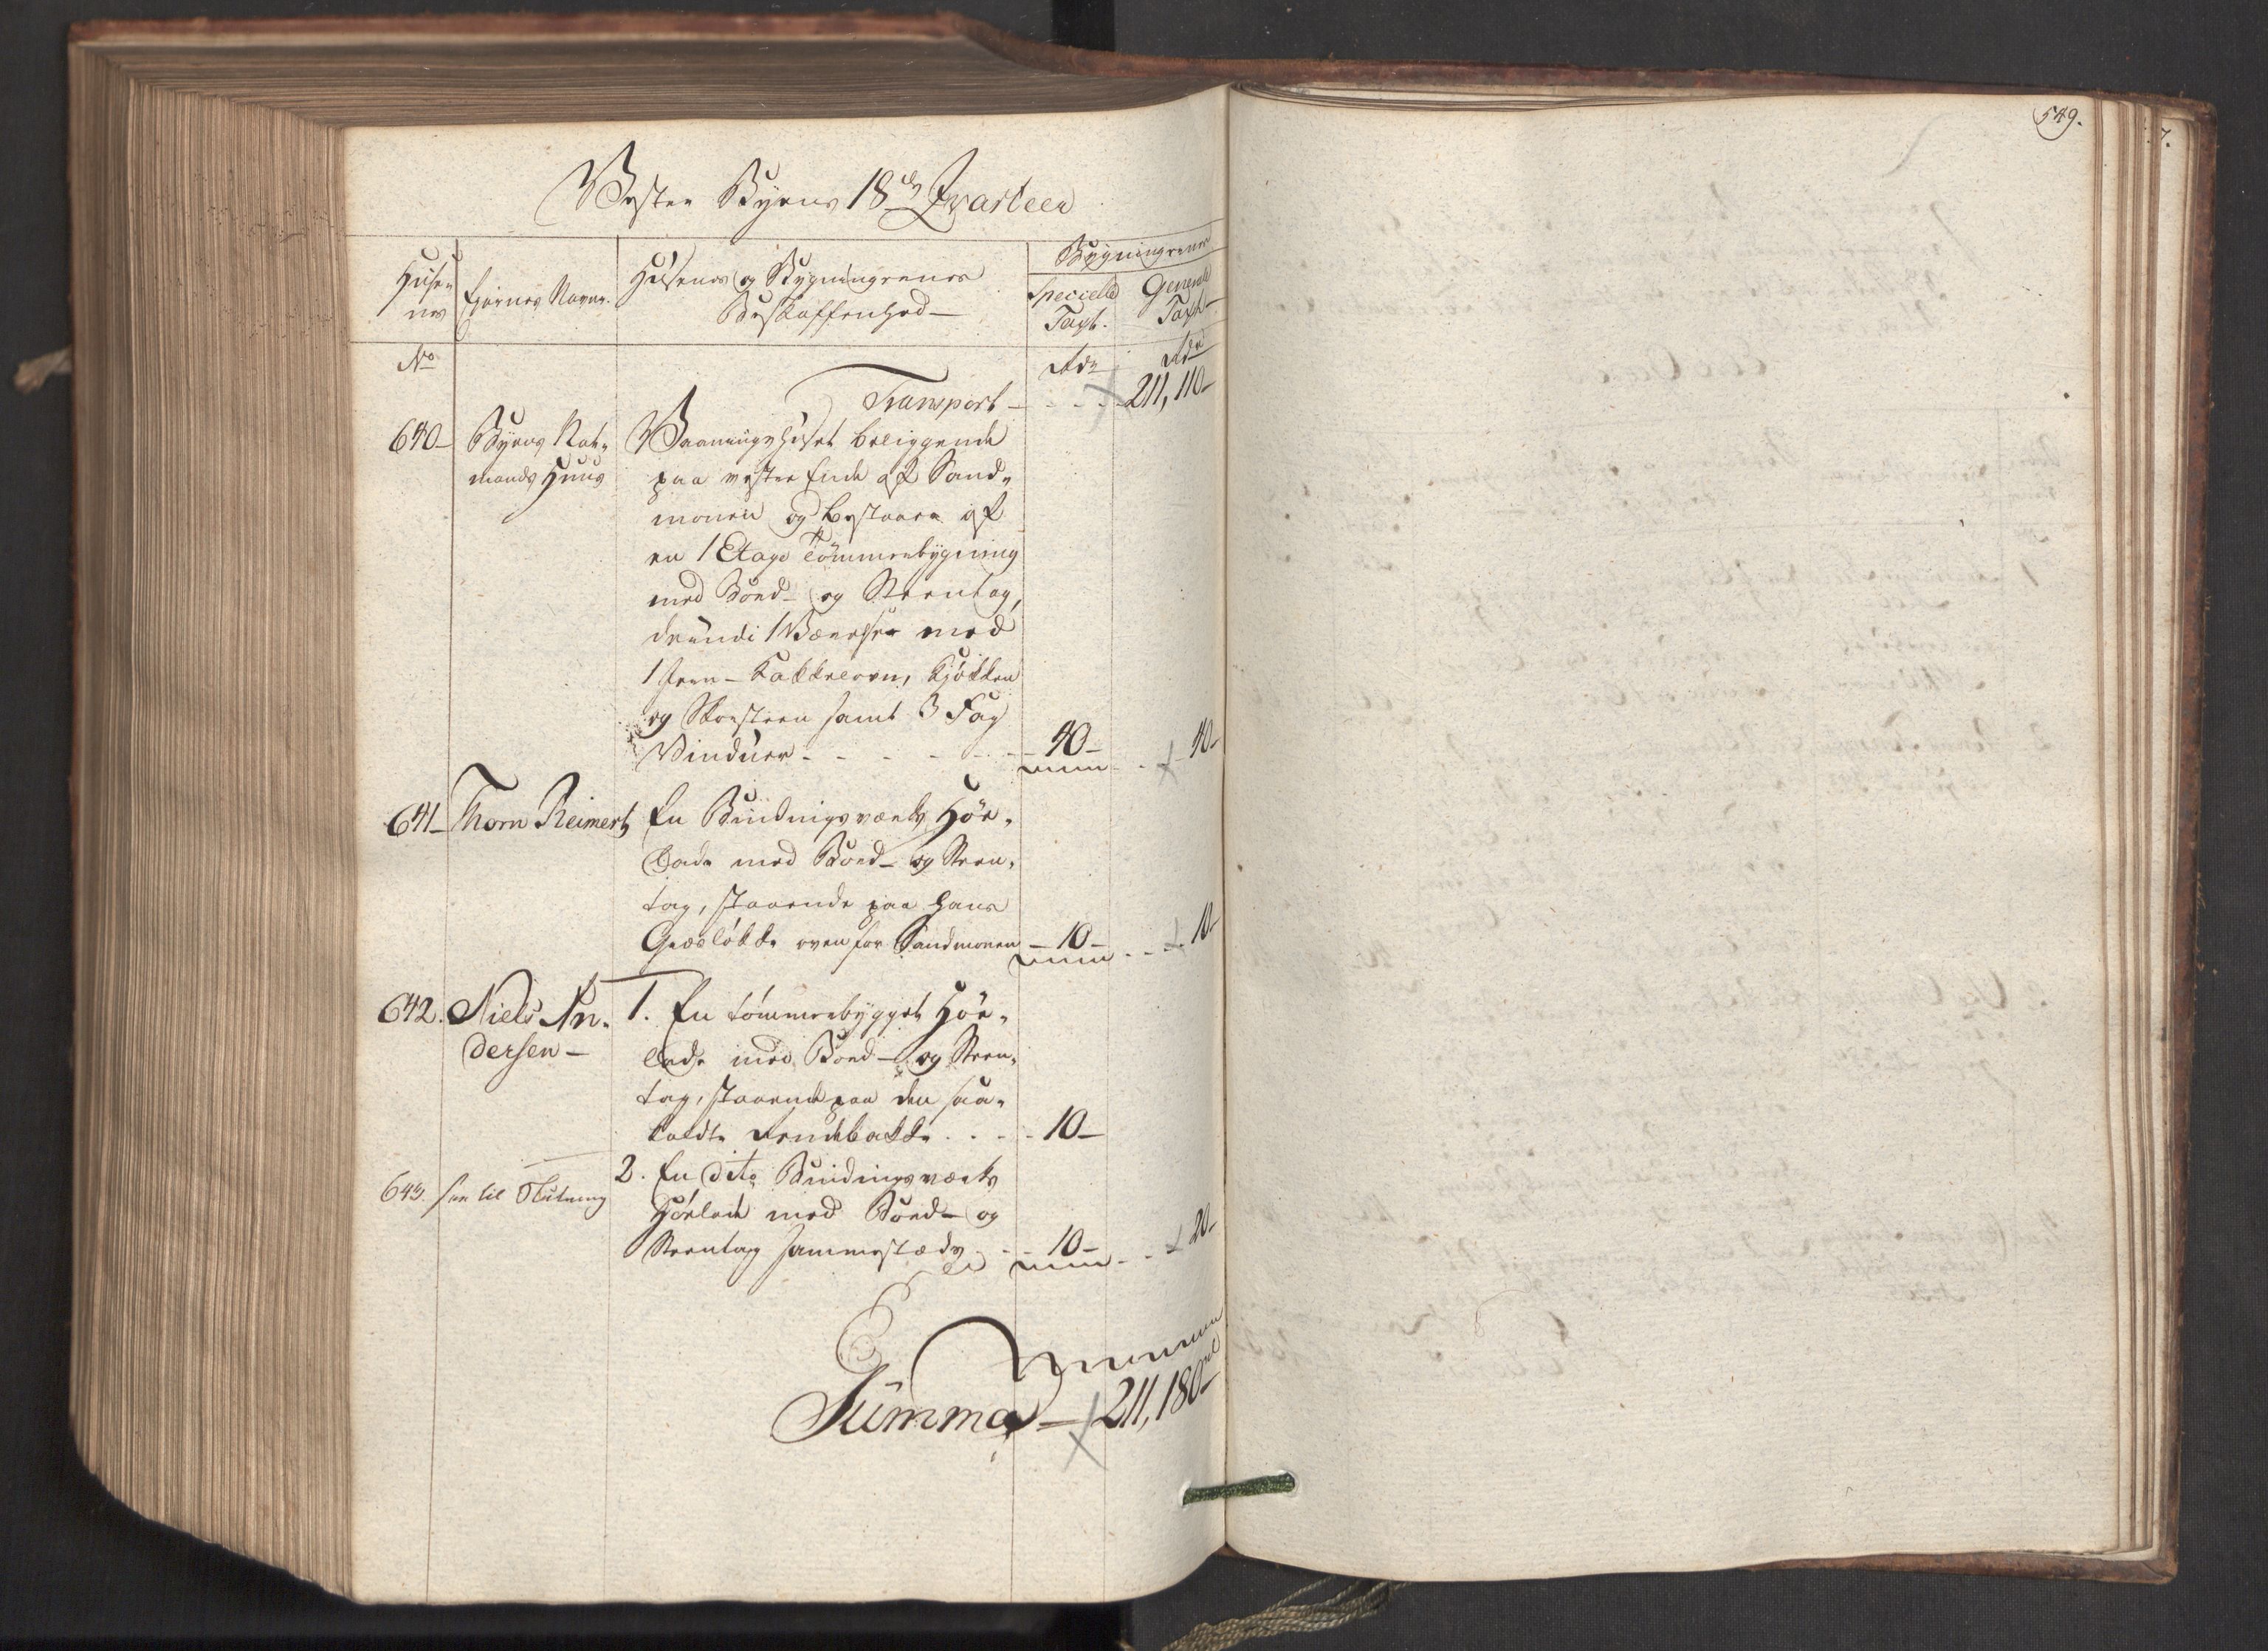 549.
Vester Byens 18de Qvarteer
Husenes
Ejernes Navne.
Husenes og Bygningernes
Beskaffenhed
Bygningernes
Specielle Taxt.
Generel Taxt
No
Rdr
Rdr
Transport 211,110
640 Byens Nat-
mands Huus
Vaaningshuset beliggende
paa vester Ende af Sand-
moen og bestaaer af
en 1 Etage Tömmerbygning
med Bord- og Steentag,
deriindi 1 Værelse med
1 Jern-Kakkelovn, Kjökken
og Skorsteen samt 3 Fag
Vinduer - 40 - 40
641 Thorn Reimert
En Bindingsværks Höe-
lade med Bord- og Steen-
tag, staaende paa hans
Grædløkke oven for Sandmoen - 10 - 10
642. Niels An-
dersen
1. En tømmerbygget Höe-
lade med Bord- og Steen-
tag, staaende paa den saa-
kaldte bakke - 10
2. En dito Bindingsværks
643. see til Slutning
Höelade med Bord- og
Steentag sammestæds - 10 - 20
Summa 211,180